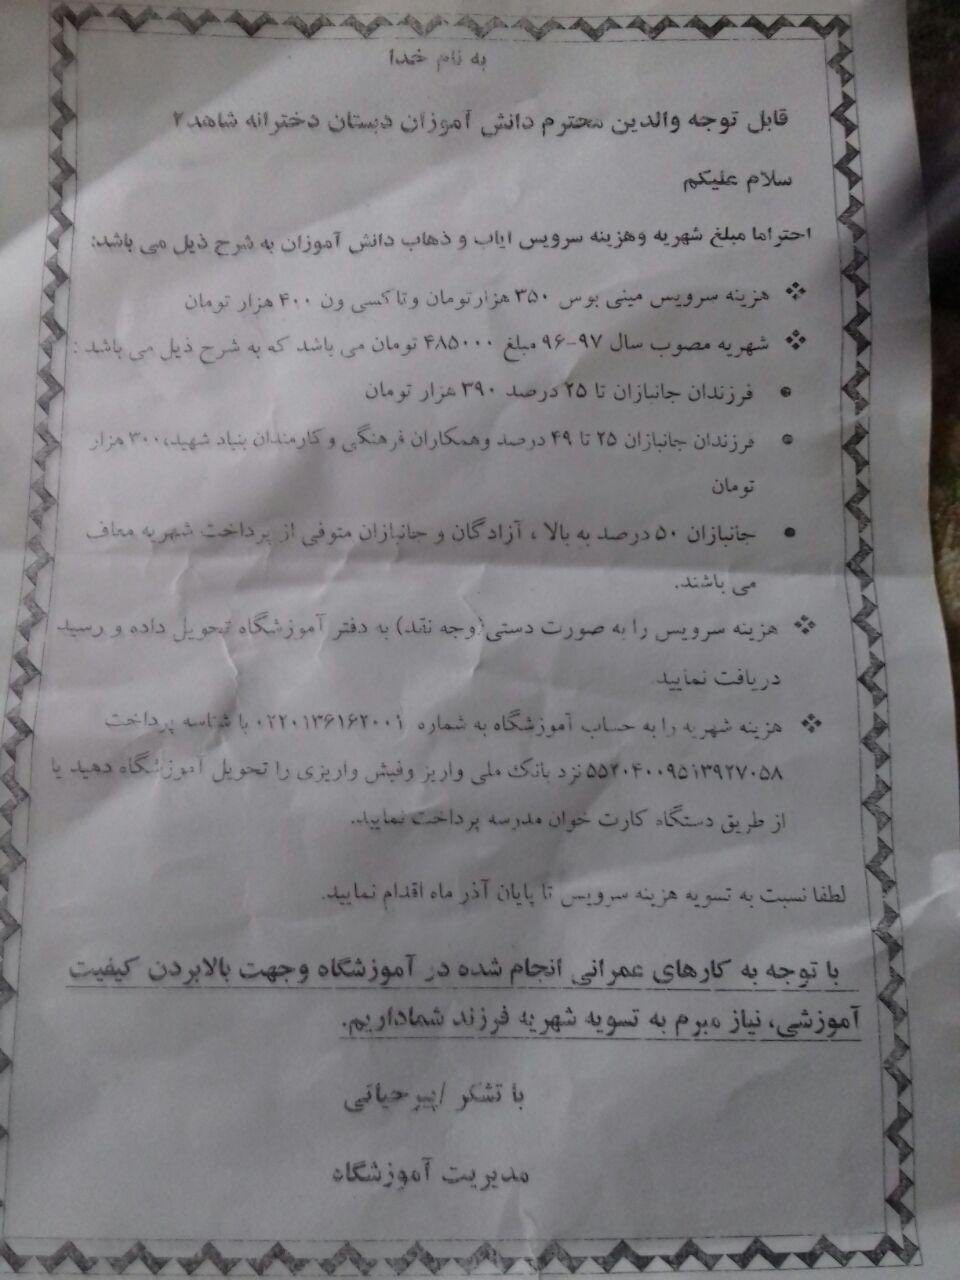 به نام خدا
قابل توجه والدین محترم دانش آموزان دبستان دخترانه شاهد۲
سلام علیکم
احتراما مبلغ شهریه وهزینه سرویس ایاب و ذهاب دانش آموزان به شرح ذیل می باشد:
❖ هزینه سرویس مینی بوس ۳۵۰ هزارتومان وتاکسی ون ۴۰۰ هزار تومان
❖ شهریه مصوب سال ۹۷-۹۶ مبلغ ۴۸۵۰۰۰ تومان می باشد که به شرح ذیل می باشد :
• فرزندان جانبازان تا ۲۵ درصد ۳۹۰ هزار تومان
• فرزندان جانبازان ۲۵ تا ۴۹ درصد وهمکاران فرهنگی و کارمندان بنیاد شهید،۳۰۰ هزار
تومان
• جانبازان ۵۰ درصد به بالا ، آزادگان و جانبازان متوفی از پرداخت شهریه معاف
می باشند.
❖ هزینه سرویس را به صورت دستی(وجه نقد) به دفتر آموزشگاه تحویل داده و رسید
دریافت نمایید
❖ هزینه شهریه را به حساب آموزشگاه به شماره ۰۲۲۰۱۳۶۱۶۲۰۰۱ با شناسه پرداخت
۵۵۲۰۴۰۰۹۵۱۳۹۲۷۰۵۸ نزد بانک ملی واریز وفیش واریزی را تحویل آموزشگاه دهید یا
از طریق دستگاه کارت خوان مدرسه پرداخت نمایید.
لطفا نسبت به تسویه هزینه سرویس تا پایان آذر ماه اقدام نمایید.
با توجه به کارهای عمرانی انجام شده در آموزشگاه وجهت بالابردن کیفیت
آموزشی، نیاز مبرم به تسویه شهریه فرزند شماداریم.
با تشکر /پیرحیاتی
مدیریت آموزشگاه